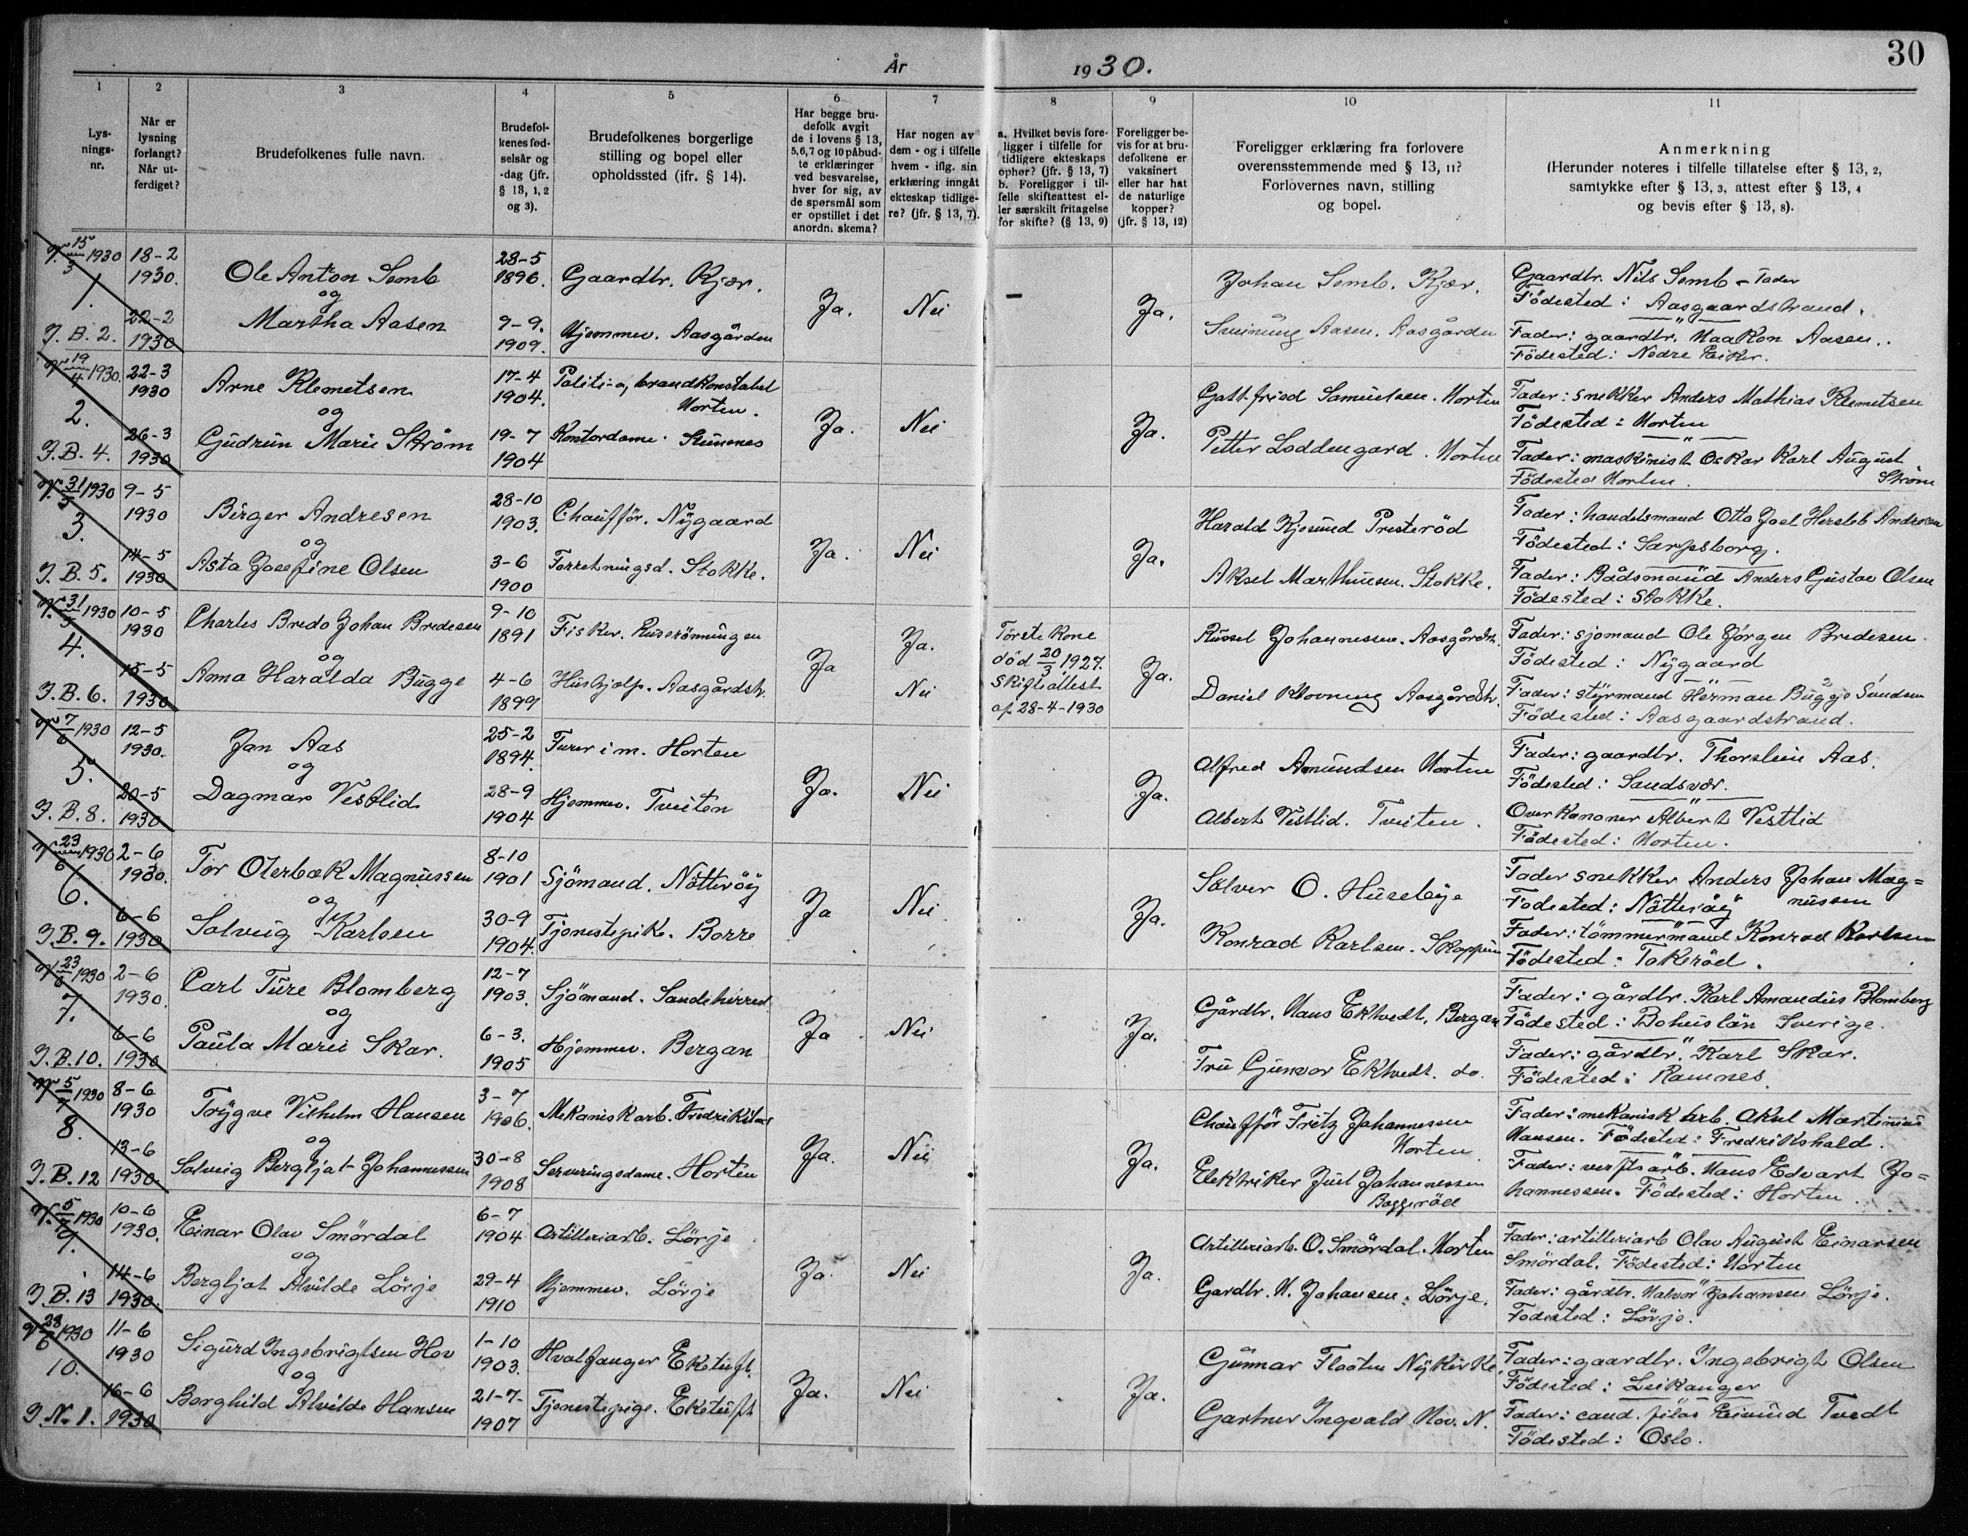 30
År 1930.
1
2
3
4
5
6
7
8
9
10
11
Lys-
nings-
nr.
Når er
lysning
forlangt?
Når ut-
ferdiget?
Brudefolkenes fulle navn.
Brudefol-
kenes fød-
selsår og
-dag (jfr.
§ 13, 1, 2
og 3).
Brudefolkenes borgerlige
stilling og bopel eller
opholdssted (ifr. § 14).
Har begge bru-
defolk avgit
de i lovens § 13,
5,6,7 og 10 påbud-
te erklæringer
ved besvarelse,
hver for sig, av
de spørsmål som
er opstillet i det
anordn. skema?
Har nogen av
dem - og i tilfelle
hvem - iflg. sin
erklæring inngåt
ekteskap tidlige-
re? (jfr. § 13, 7).
a. Hvilket bevis fore-
ligger i tilfelle for
tidligere ekteskaps
ophør? (jfr. § 13, 7)
b. Foreligger i til-
felle skifteattest el-
ler særskilt fritagelse
for skifte? (§ 13, 9)
Foreligger be-
vis for at bru-
defolkene er
vaksinert
eller har hat
de naturlige
kopper?
(jfr. § 13, 12)
Foreligger erklæring fra forlovere
overensstemmende med § 13, 11?
Forlovernes navn, stilling
og bopel.
Anmerkning
(Herunder noteres i tilfelle tillatelse efter § 13, 2,
samtykke efter § 13, 3, attest efter § 13, 4
og bevis efter § 13, 8).
V. 15/3 1930
1.
J.B. 2.
18-2
1930.
22-2
1930
Ole Anton Semb
og
Martha Aasen
28-5
1896.
9-9.
1909.
Gaardbr. Kjær.
Hjemmev. Aasgården
Ja.
Nei
-
Ja.
Johan Semb. Kjær.
Aasen. Aasgården
Gaardbr. Nils Semb - Fader
Födested: Aasgaardstrand.
Fader: gaardbr. Haakon Aasen.
Födested: Nedre Eiker.
V. 19/4 1930.
2.
J.B. 4.
22-3
1930
26-3
1930
Arne Klemetsen
og
Gudrun Marie Strøm
17-4
1904.
19-7
1904
Politi- o, brandkonstabel
Horten.
Kontordame.
Ja.
Nei
Ja.
Gottfried Samuelsen. Horten
Petter Loddengard. Horten
Fader: snekker Anders Mathias Klemetsen
Födested: Horten
Fader: maskinist Oskar Karl August
Strøm
Födested Horten.
V. 31/5 1930
3.
J.B. 5.
9-5
1930
14-5
1930
Birger Andresen
og
Asta Josefine Olsen
28-10
1903.
3-6
1900
Chauffør. Nygaard
Forretningsd. Stokke.
Ja.
Nei
Ja.
Harald Kjosund Presteröd
Aksel Marthinsen. Stokke.
Fader: handelsmand Otto Joel Hersleb Andresen
Födested: Sarpsborg.
Fader: Bådsmand Anders Gustav Olsen
Födested: Stokke.
V. 31/5 1930
4.
J.B. 6.
10-5
1930
15-5
1930
Charles Bredo Johan Bredesen
og
Anna Haralda Bugge
9-10
1891
4-6
1899
Fisker.
Hushjælp. Aasgårdstr.
Ja
Ja.
Nei
Förete Kone
död 20/3 1927.
Skifteattest
af 28-4-1930
Ja.
Johannessen. Aasgårdstr.
Daniel Klovning Aasgårdstr.
Fader: sjomand Ole Jörgen Bredesen.
Födested: Nygaard
Fader: styrmand Herman Bugge
Födested: Aasgaardstrand.
V. 7/6 1930
5.
J.B. 8.
12-5
1930.
20-5
1930
Jan Aas
og
Dagmar Vestlid
25-2
1894.
28-9
1904
Furer i m. Horten
Hjemmev. Tveiten
Ja.
Nei
Ja.
Alfred Amundsen Horten
Albert Vestlid. Tveiten.
Fader: gaardbr. Thorstein Aas.
Födested: Sandsvær.
Overkanoner Albert Vestlid
Födested: Horten.
V. 23/6 1930
6.
J.B. 9.
2-6
1930.
6-6
1930
Tor Oterbæk Magnussen
og
Solveig Karlsen
8-10
1901
30-9
1904.
Sjömand. Nötteröy
Tjenestepike. Borre
Ja
Nei
Ja.
Sölver O. Huseby
Konrad Karlsen. Skoppum
Fader snekker Anders Johan Mag=
nussen
Födested: Nötteröy
Fader: tömmermand Konrad Karlsen
Födested: Takeröd.
V. 23/6 1930
7.
J.B. 10.
2-6
1930.
6-6
1930
Carl Ture Blomberg
og
Paula Marie Skar.
12-7
1903.
6-3.
1905
Sjömand. Sandeherred
Hjemmev. Bergan
Ja
Nei
Ja.
Gårdbr. Hans Ektvedt, Bergan
Fru Gunvor Ektvedt. do.
Fader: gårdbr. Karl Amandus Blomberg
Födested: Bohuslän Sverige.
Fader: gårdbr. Karl Skar.
Födested: Ramnes.
V. 5/7 1930
8.
J.B. 12
8-6
1930
13-6
1930.
Trygve Vilhelm Hansen
og
Solveig Bergljot Johannessen
3-7
1906.
30-8
1908
Mekanisk arb.
Serveringsdame. Horten
Ja.
Nei
Ja.
Chauffør Fritz Johannessen
Horten
Elektriker Juel Johannessen
Baggeröd
Fader: mekanisk arb. Aksel Martinius
Hansen. Födested: Fredrikshald.
Fader: verftsarb. Hans Edvart Jo=
hannessen. Födested: Horten.
V. 5/7 1930
9.
J.B. 13
10-6
1930.
14-6
1930.
Einar Olav Smördal
og
Bergljot Alvilde Lörje
6-7
1904
29-4
1910
Artilleriarb. Lörje
Hjemmev. Lörje
Ja.
Nei
Ja.
Artilleriarb. O. Smördal. Horten
Gardbr. H. Johansen. Lörje.
Fader: artilleriarb Olav August Einarsen
Smördal. Födested: Horten
Fader: gårdbr. Halvor Johansen Lörje.
Födested: Lörje.
V. 28/6 1930
10.
J. N. 1.
11-6
1930
16-6
1930
Sigurd Ingebrigtsen Hov
og
Borghild Alvilde Hansen
1-10
1903.
21-7-
1907
Hvalfanger Eketuft.
Tjenestepige. Eketuft
Ja.
Nei
Ja.
Gunnar Flaaten Nykirke
Gartner Ingvald Hov. N.
Fader: gaardbr. Ingebrigt Olsen
Födested: Leikanger
Fader: cand. filos Eivind Tvedt
Födested: Oslo.